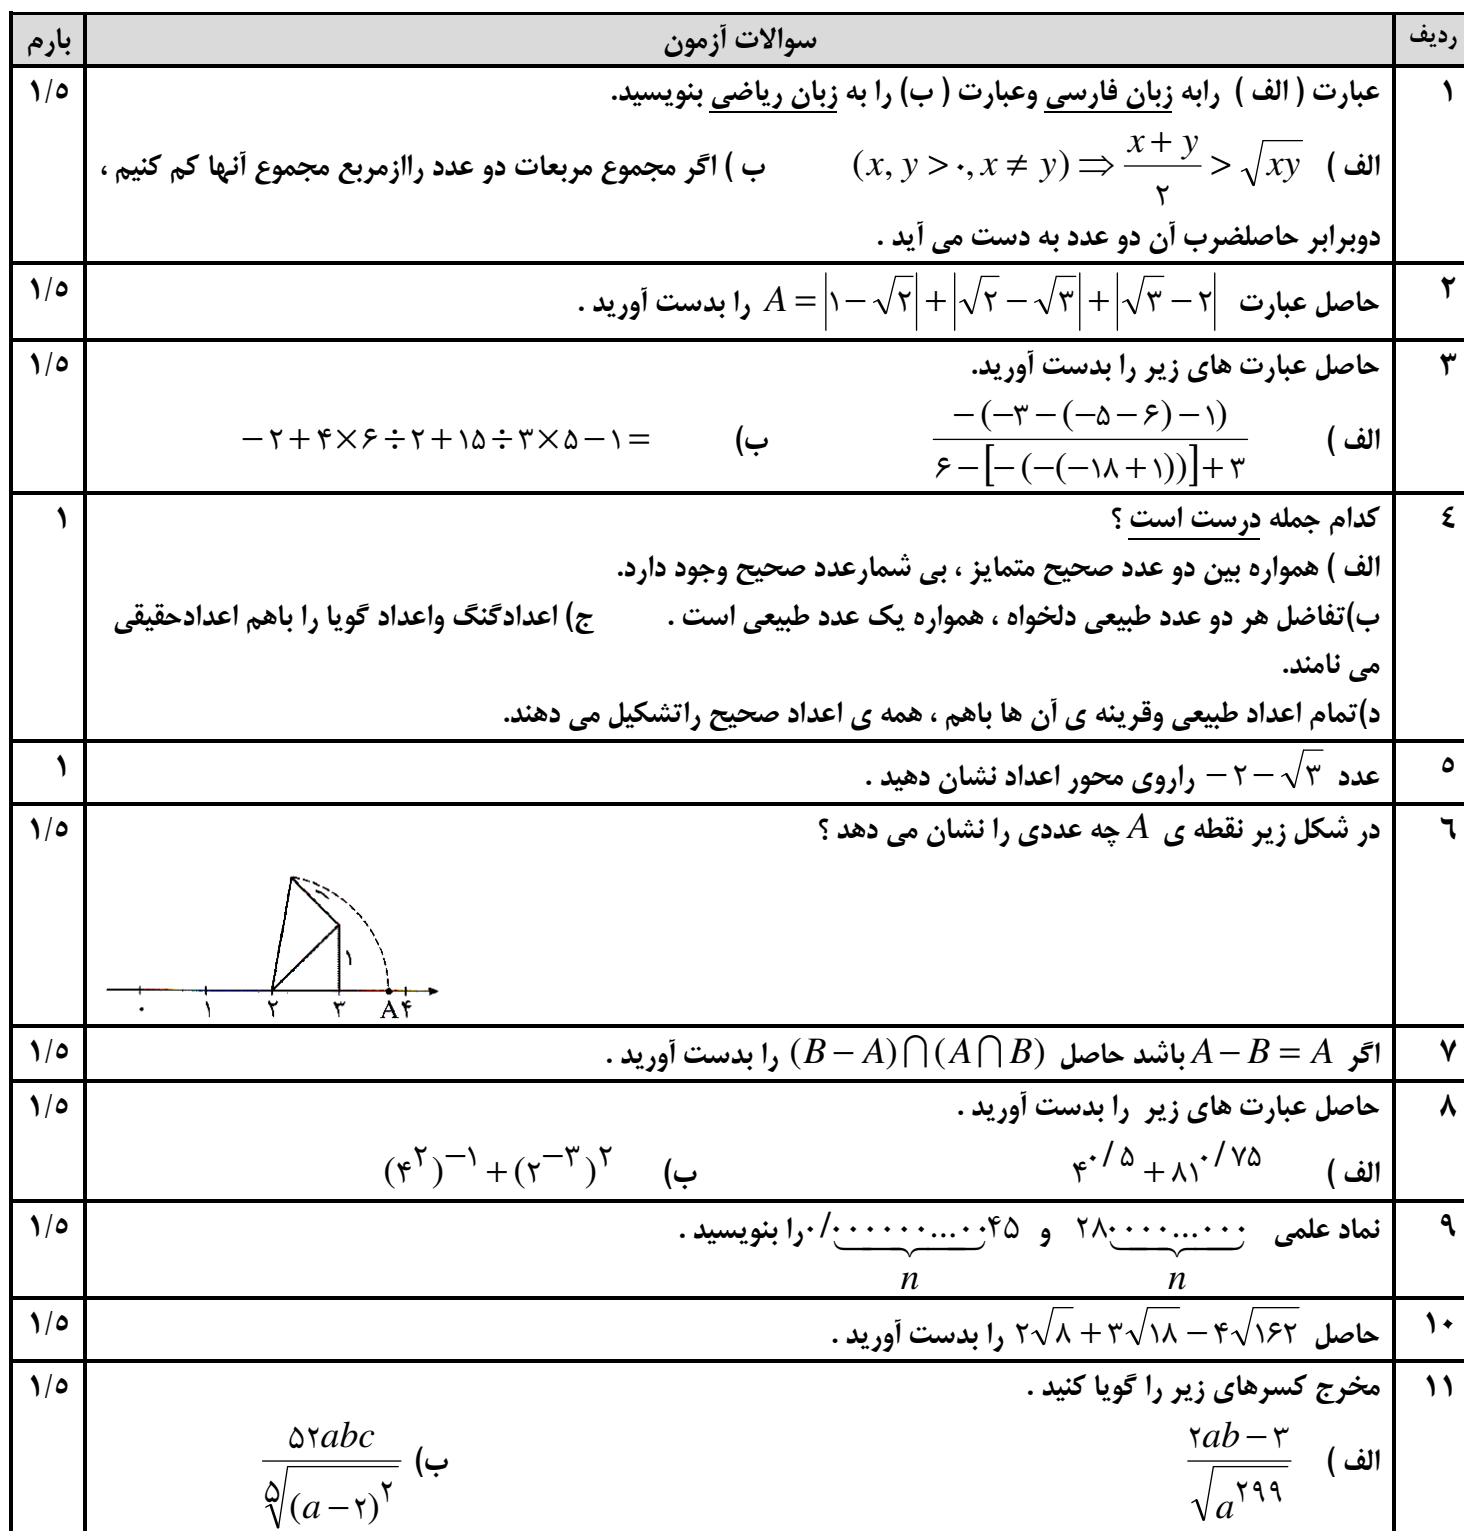 ردیف سوالات آزمون بارم
۱ عبارت ( الف ) رابه زبان فارسی وعبارت ( ب) را به زبان ریاضی بنویسید. ۱/۵
الف ) (x, y > ۰, x ≠ y) ⇒ (x + y)/۲ > √(xy) ب ) اگر مجموع مربعات دو عدد راازمربع مجموع آنها کم کنیم ،
دوبرابر حاصلضرب آن دو عدد به دست می آید .
۲ حاصل عبارت A = |۱ − √۲| + |√۲ − √۳| + |√۳ − ۲| را بدست آورید . ۱/۵
۳ حاصل عبارت های زیر را بدست آورید. ۱/۵
الف ) (−(−۳ − (−۵ − ۶) − ۱))/(۶ − [−(−(−۱۸ + ۱))] + ۳) ب) −۲ + ۴ × ۶ ÷ ۲ + ۱۵ ÷ ۳ × ۵ − ۱ =
٤ کدام جمله درست است ؟ ۱
الف ) همواره بین دو عدد صحیح متمایز ، بی شمارعدد صحیح وجود دارد.
ب)تفاضل هر دو عدد طبیعی دلخواه ، همواره یک عدد طبیعی است . ج) اعدادگنگ واعداد گویا را باهم اعدادحقیقی
می نامند.
د)تمام اعداد طبیعی وقرینه ی آن ها باهم ، همه ی اعداد صحیح راتشکیل می دهند.
۵ عدد −۲ − √۳ راروی محور اعداد نشان دهید . ۱
٦ در شکل زیر نقطه ی A چه عددی را نشان می دهد ؟ ۱/۵
۱
۱
۰ ۱ ۲ ۳ A ۴
۷ اگر A − B = A باشد حاصل (B − A)⋂(A⋂B) را بدست آورید . ۱/۵
۸ حاصل عبارت های زیر را بدست آورید . ۱/۵
الف ) ۴^۰/۵ + ۸۱^۰/۷۵ ب) (۴^۲)^−۱ + (۲^−۳)^۲
۹ نماد علمی ۲۸۰۰۰۰...۰۰۰ و ۰/۰۰۰۰۰۰...۰۰۴۵ را بنویسید . ۱/۵
n n
۱۰ حاصل ۲√۸ + ۳√۱۸ − ۴√۱۶۲ را بدست آورید . ۱/۵
۱۱ مخرج کسرهای زیر را گویا کنید . ۱/۵
الف ) (۲ab − ۳)/√(a^۲۹۹) ب) ۵۲abc/⁵√((a − ۲)^۲)